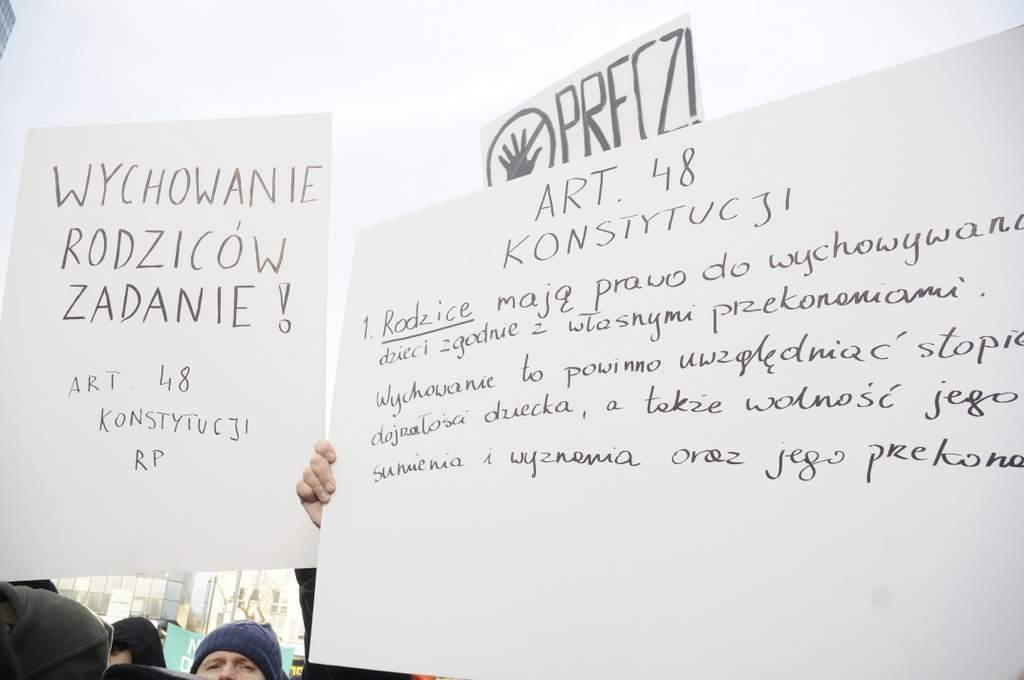 WYCHOWANIE
RODZICÓW
ZADANIE!
ART. 48
KONSTYTUCJI
RP
PRECZ!
ART. 48
KONSTYTUCJI
1. Rodzice mają prawo do wychowywan
dzieci zgodnie z własnymi przekonaniami.
Wychowanie to powinno uwzględniać stopi
dojrzałości dziecka, a także wolność jego
sumienia i wyznania oraz jego przekona